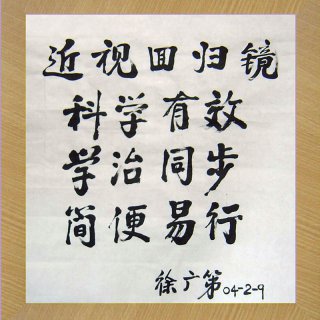 近视回归镜
科学有效
学治同步
简便易行
徐广第04-2-9